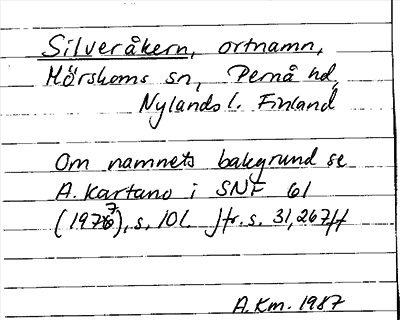 Silveråkern, ortnamn,
Mörskoms sn, Pernå hd,
Nylands l. Finland
Om namnets bakgrund se
A. Kartano i SNF 61
(1977), s. 101. Jfr. s. 31, 267ff
A.Km. 1987